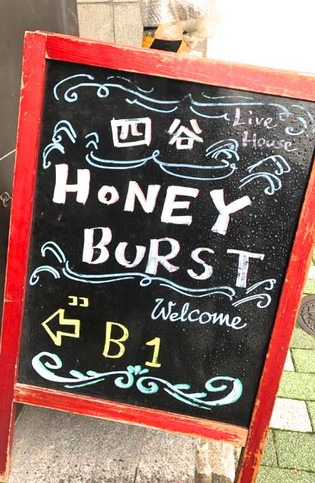 四谷
Live
House
HoNEY
BURST
Welcome
ココ
B1